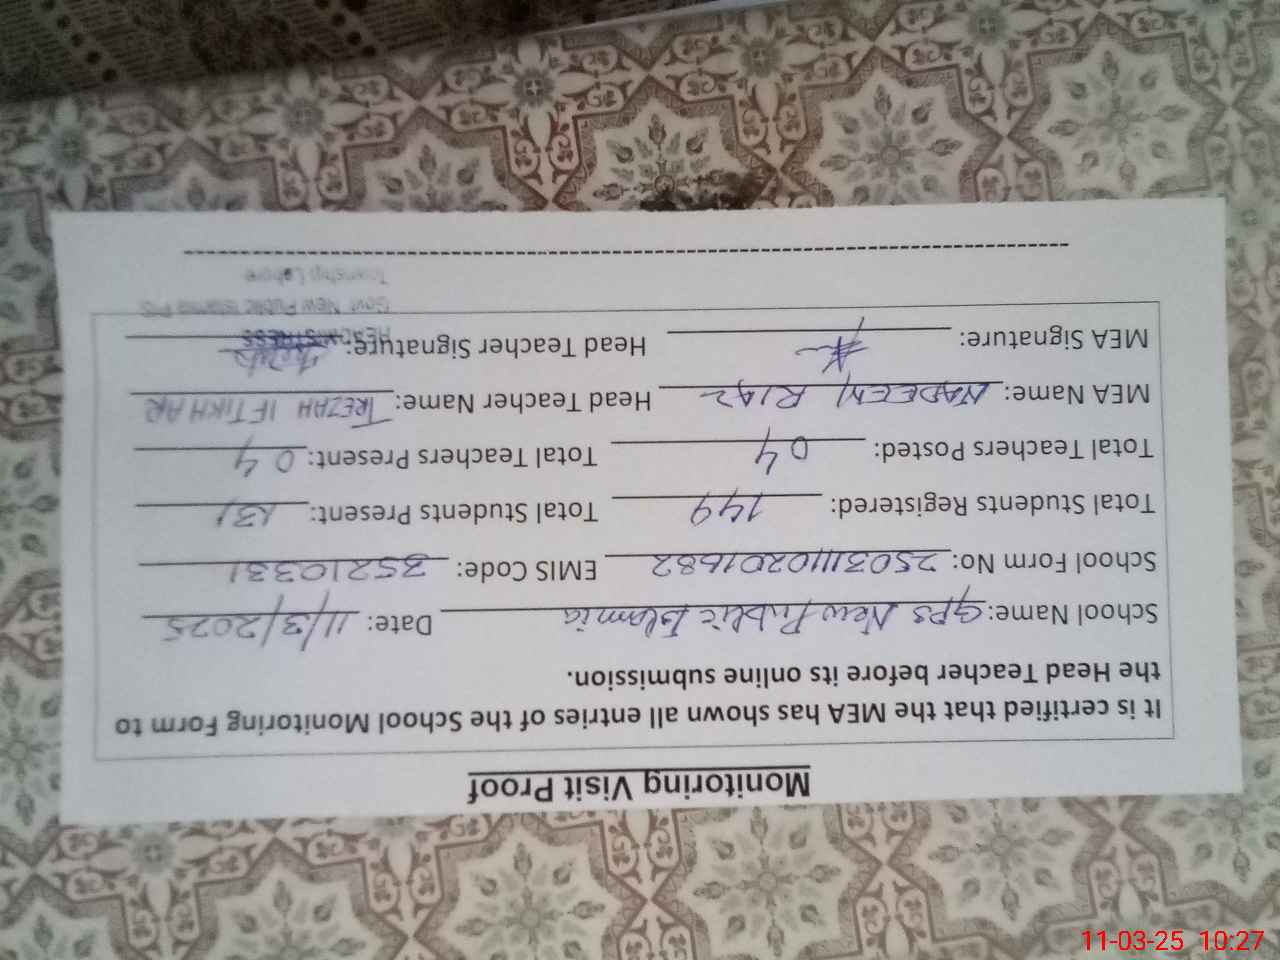 Monitoring Visit Proof
It is certified that the MEA has shown all entries of the School Monitoring Form to
the Head Teacher before its online submission.
School Name: GPS New Public Islamia Date: 11/3/2025
School Form No: 25031110201682 EMIS Code: 35210331
Total Students Registered: 149 Total Students Present: 131
Total Teachers Posted: 04 Total Teachers Present: 04
MEA Name: NADEEM RIAZ Head Teacher Name: TREZAH IFTIKHAR
MEA Signature: Head Teacher Signature:
HEADMISTRESS
Govt New Public Islamia P/S
Township Lahore
11-03-25 10:27